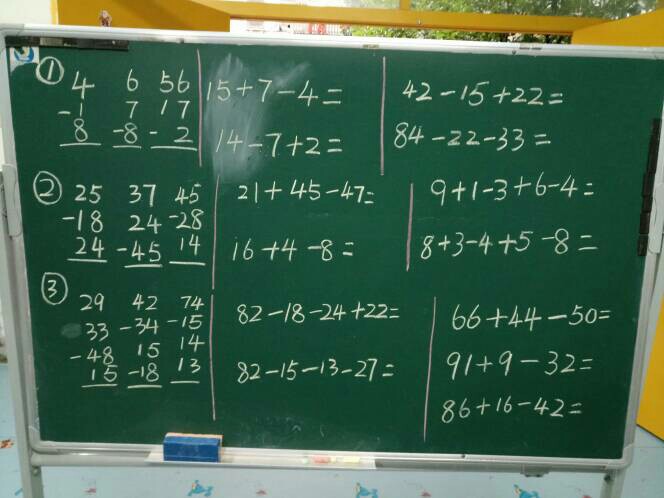 ① 4 6 56 15+7-4= 42-15+22=
-1 7 17
8 -8 -2 14-7+2= 84-22-33=
② 25 37 45 21+45-47= 9+1-3+6-4=
-18 24 -28
24 -45 14 16+4-8= 8+3-4+5-8=
③ 29 42 74 82-18-24+22= 66+44-50=
33 -34 -15
-48 15 14 82-15-13-27= 91+9-32=
15 -18 13 86+16-42=